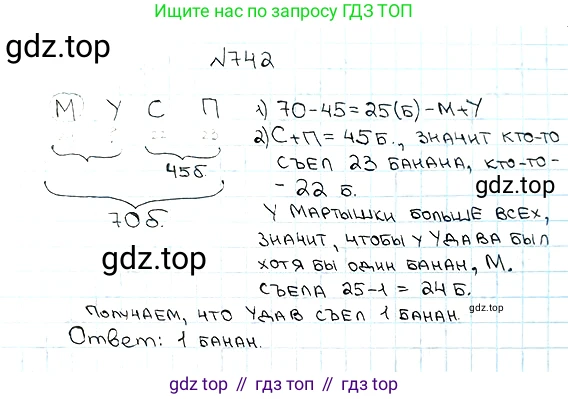 Ищите нас по запросу ГДЗ ТОП
gdz.top
№742
М У С П
1) 70-45=25(Б)-М+У
2) С+П=45Б., ЗНАЧИТ КТО-ТО
45б.
СЪЕЛ 23 БАНАНА, КТО-ТО-
- 22 Б.
gdz.top
70б.
У МАРТЫШКИ БОЛЬШЕ ВСЕХ,
gdz.top
ЗНАЧИТ, ЧТОБЫ У УДАВА БЫЛ
ХОТЯ БЫ ОДИН БАНАН, М.
СЪЕЛА 25-1 = 24 Б.
gdz.top
ПОЛУЧАЕМ, ЧТО УДАВ СЪЕЛ 1 БАНАН.
Ответ: 1 БАНАН.
gdz top // гдз топ // gdz top